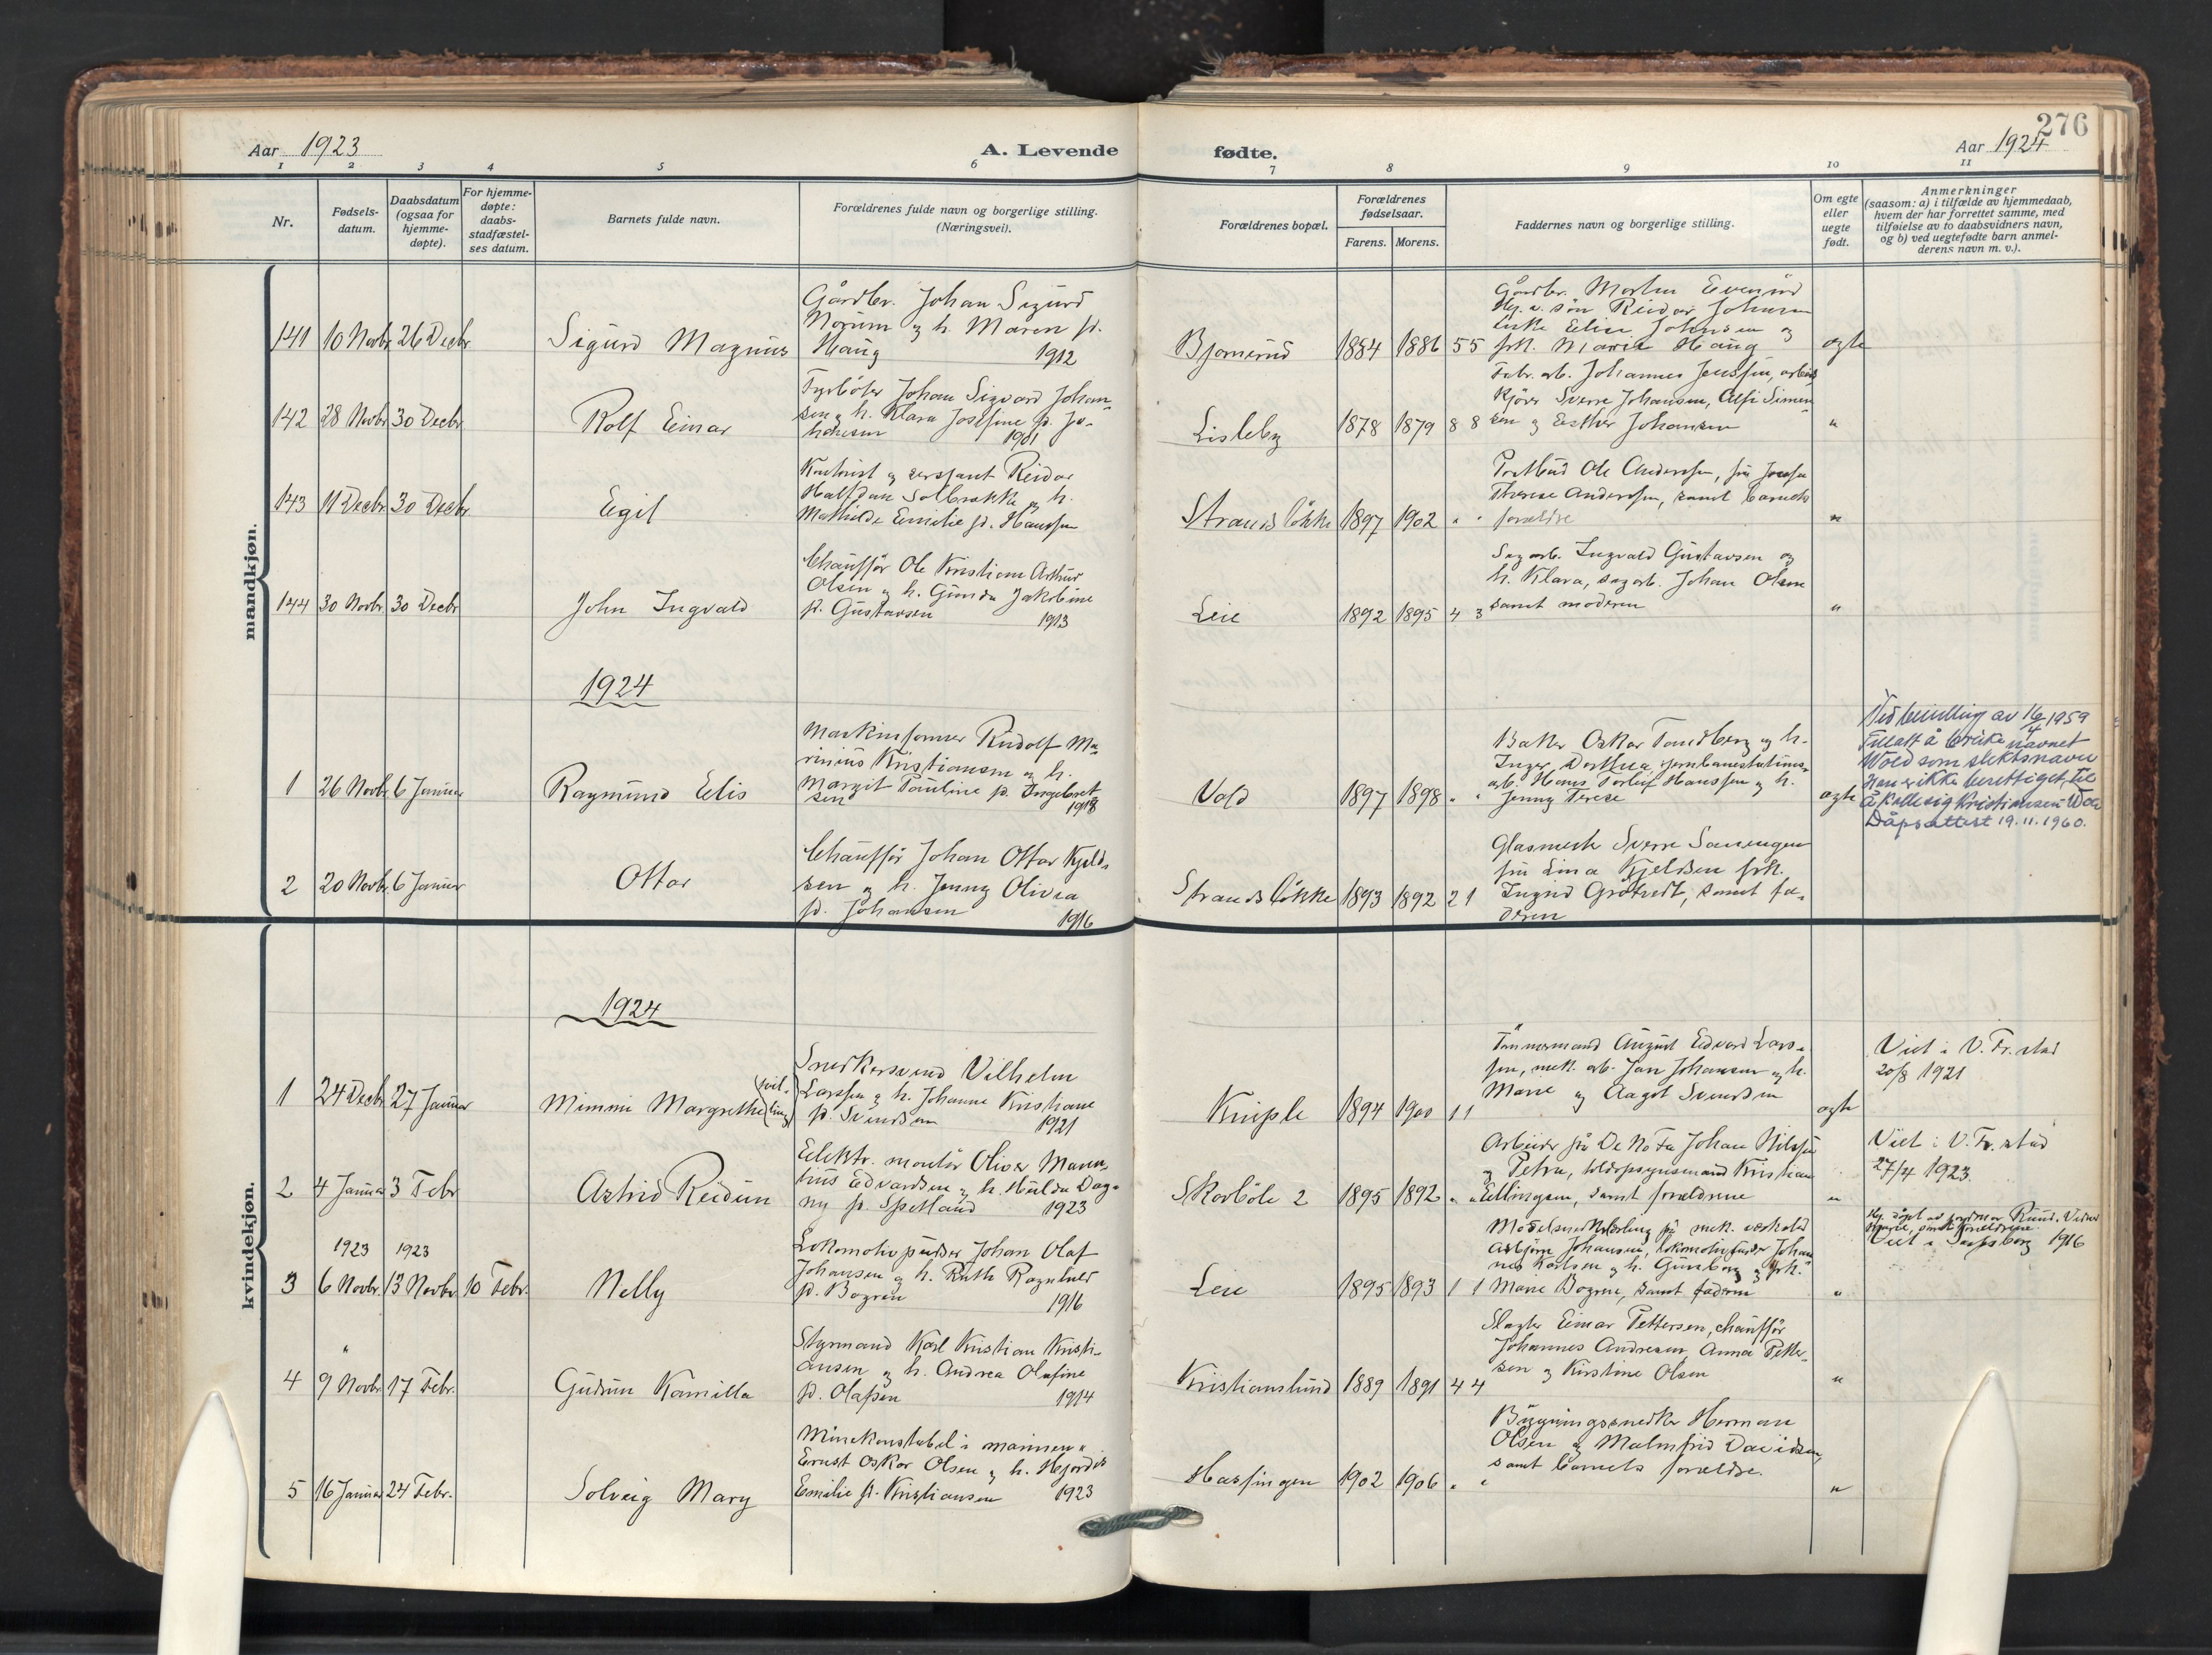 276
Aar 1923
A. Levende
fødte.
Aar 1924
1 2 3 4 5 6 7 8 9 10 11
Nr.
Fødsels-
datum.
Daabsdatum
(ogsaa for
hjemme-
døpte).
For hjemme-
døpte:
daabs-
stadfæstel-
ses datum.
Barnets fulde navn.
Forældrenes fulde navn og borgerlige stilling.
(Næringsvei).
Forældrenes bopæl.
Forældrenes
fødselsaar.
Farens. Morens.
Faddernes navn og borgerlige stilling.
Om egte
eller
uegte
født.
Anmerkninger
(saasom: a) i tilfælde av hjemmedaab,
hvem der har forrettet samme, med
tilføielse av to daabsvidners navn,
og b) ved uegtefødte barn anmel-
derens navn m. v.).
mandkjøn.
141 10 Novbr. 26 Decbr.
Sigurd Magnus
Gårdbr. Johan Sigurd
Norum og h. Maren f.
Haug 1912
Bjørnerud 1884 1886 5 5
Gårdbr. Martin Evenrud
søn Reidar Johansen
Elise Johnsen og
frk. Marie Haug
egte
142 28 Novbr. 30 Decbr.
Rolf Einar
Fyrbøter Johan Sigvard Johan-
sen og h. Klara Josefine f. Jo-
hansen 1901
Lisleby 1878 1879 8 8
Fabr. arb. Johannes Jenssen, arbeids
kjører Sverre Johansen, Alfi Simen-
sen og Esther Johansen
"
143 11 Decbr. 30 Decbr.
Egil
Kontorist og sersjant Reidar
Halfdan Solbrække og h.
Mathilde Emilie f. Hanssen
Strandsløkke 1897 1902 " "
Postbud Ole Anderssen, fru Josefa
Therese Anderssen, samt barnets
forældre
"
144 30 Novbr. 30 Decbr.
John Ingvald
Chauffør Ole Kristian Arthur
Olsen og h. Gunda Jakobine
f. Gustavsen 1913
Leie 1892 1895 4 3
Sag arb. Ingvald Gustavsen og
h. Klara, sagarb. Johan Olsen
samt moderen
"
1924
1 26 Novbr. 6 Januar
Raymund Elis
Maskinformer Rudolf Ma-
rinius Kristiansen og h.
Margit Pauline f. Ingebret-
sen 1918
Vold 1897 1898 " "
Baker Oskar Tandberg og h.
Inger Dorthea, jernbanestations-
arb. Hans Torleif Hanssen og h.
Jenny Terese
egte
Ved bevilling av 16/4 1959
tillatt å bruke navnet
Wold som slektsnavn
Han er ikke berettiget til
å kalle sig Kristiansen Wold
Dåpsattest 19.11.1960.
2 20 Novbr. 6 Januar
Ottar
Chauffør Johan Ottar Kjeld-
sen og h. Jenny Olivia
f. Johansen 1916
Strandsløkke 1893 1892 2 1
Glasmester Sverre Sørensen
fru Lina Kjeldsen frk.
Ingrid Grøtvedt, samt fa-
deren
kvindekjøn.
1924
1 24 Decbr. 27 Januar
Mimmi Margrethe (tvil-
ling)
Snedkersvend Vilhelm
Larssen og h. Johanne Kristiane
f. Svendsen 1921
Kniple 1894 1900 1 1
Tømmermand August Edvard Lars-
sen, mek. arb. Jan Johansen og h.
Marie og Aagot Svendsen
egte
Viet i V. Fr.stad
20/8 1921
2 4 Januar 3 Febr.
Astrid Reidun
Elektr. montør Oliver Maren-
tius Edvardsen og h. Hulda Dag-
ny f. Spetland 1923
Skovbøle 2 1895 1892 " "
Arbeider på De No Fa Johan Nilssen
og Petra, toldopsynsmand Kristian
Ellingsen, samt forældrene
"
Viet i V. Fr.stad
27/4 1923.
1923 1923
3 6 Novbr. 13 Novbr. 10 Febr.
Nelly
Lokomotivpudser Johan Olaf
Johansen og h. Ruth Ragnhild
f. Bogren 1916
Leie 1895 1893 1 1
Modelsnedkerlærling på mek. verksted
Asbjørn Johansen, lokomotivfyrbøter Johan
nes Karlsen og h. Gunborg og frk.
Marie Bogren, samt faderen
"
Hj. døpt av jordmor Ruud. Vidner
forældrene.
Viet i Sarpsborg 1916
"
4 9 Novbr. 17 Febr.
Gudrun Kamilla
Styrmand Karl Kristian Kristi-
ansen og h. Andrea Olafine
f. Olafsen 1914
Kristianslund 1889 1891 4 4
Slagter Einar Pettersen, chauffør
Johannes Andresen, Anna Petter-
sen og Kirstine Olsen
"
5 16 Januar 24 Febr.
Solveig Mary
Minekonstabel i marinen
Ernst Oskar Olsen og h. Hjørdis
Emilie f. Kristiansen 1923
Hassingen 1902 1906 " "
Bygningssnedker Herman
Olsen og Malmfrid Davidsen,
samt barnets forældre.
"